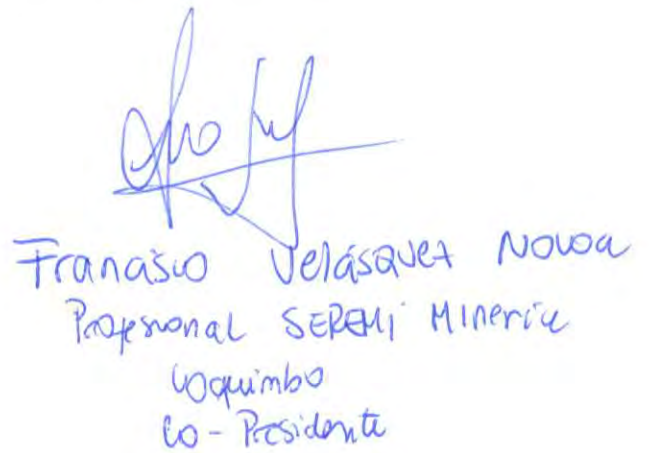 Francisco Velásquez Novoa
Profesional SEREMI Minería
Coquimbo
Co-Presidente